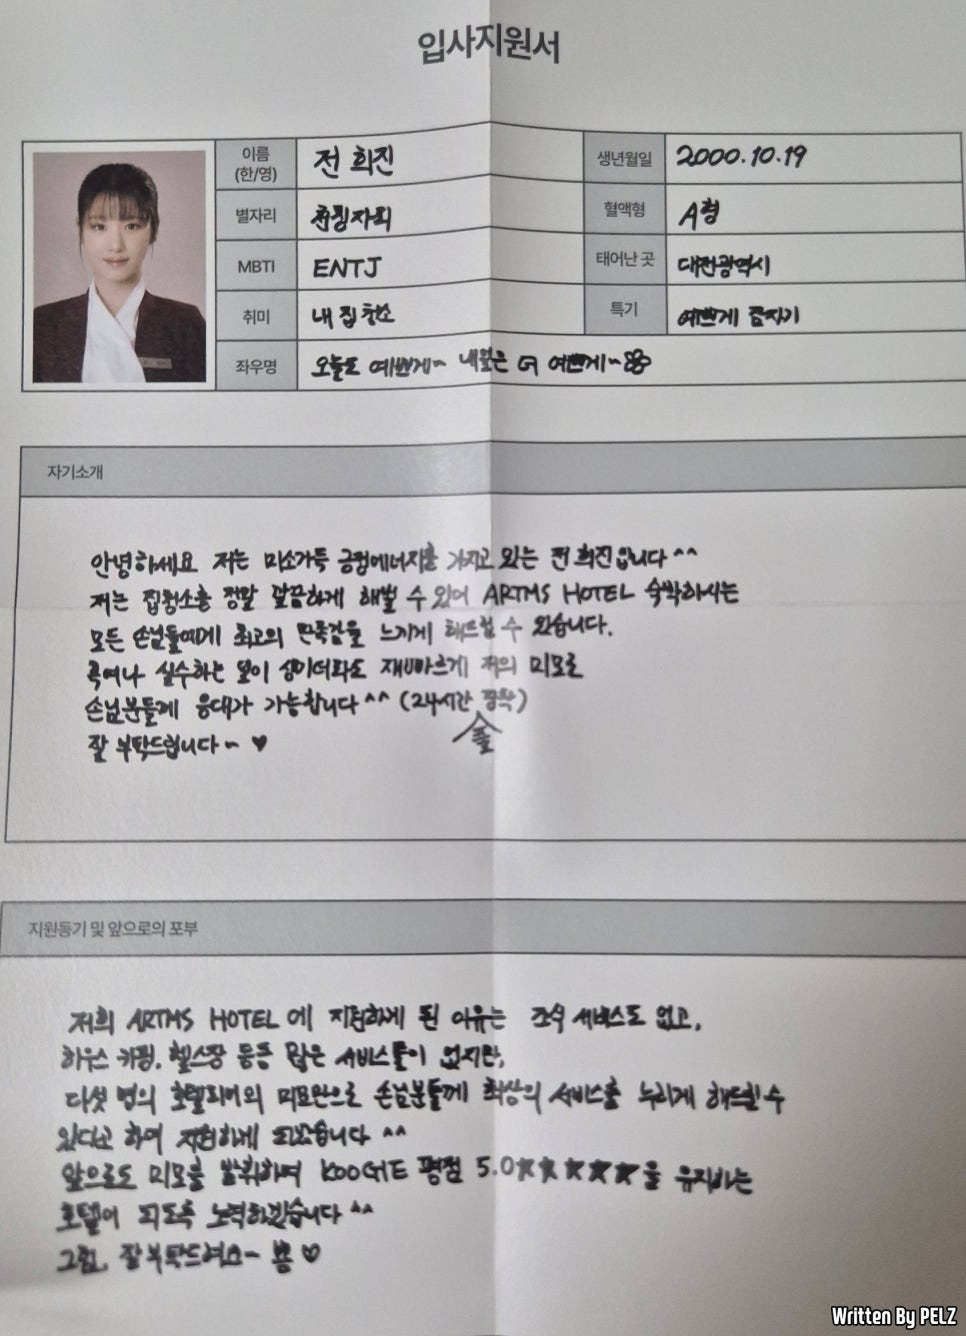 입사지원서
이름 (한/영) 전 희진 생년월일 2000.10.19
별자리 천칭자리 혈액형 A형
MBTI ENTJ 태어난 곳 대전광역시
취미 내 집 청소 특기 예쁘게 춤추기
좌우명 오늘도 예쁘게~ 내일은 더 예쁘게~
자기소개
안녕하세요 저는 미소가득 긍정에너지를 가지고 있는 전 희진입니다^^
저는 집청소를 정말 깔끔하게 해낼 수 있어 ARTMS HOTEL 숙박하시는
모든 손님들에게 최고의 만족감을 느끼게 해드릴 수 있습니다.
혹여나 실수하는 일이 생기더라도 재빠르게 저의 미모로
손님분들께 응대가 가능합니다^^ (24시간 장착)
잘 부탁드립니다~ ♥
지원동기 및 앞으로의 포부
저희 ARTMS HOTEL 에 지원하게 된 이유는 조식 서비스도 없고,
하우스 키핑, 헬스장 등등 많은 서비스들이 없지만,
다섯 명의 호텔리어의 미모만으로 손님분들께 최상의 서비스를 누리게 해드릴 수
있다고 하여 지원하게 되었습니다 ^^
앞으로도 미모를 발휘하여 KOOGLE 평점 5.0★★★★★을 유지하는
호텔이 되도록 노력하겠습니다 ^^
그럼, 잘 부탁드려요~ 뿅 ♡
Written By PELZ